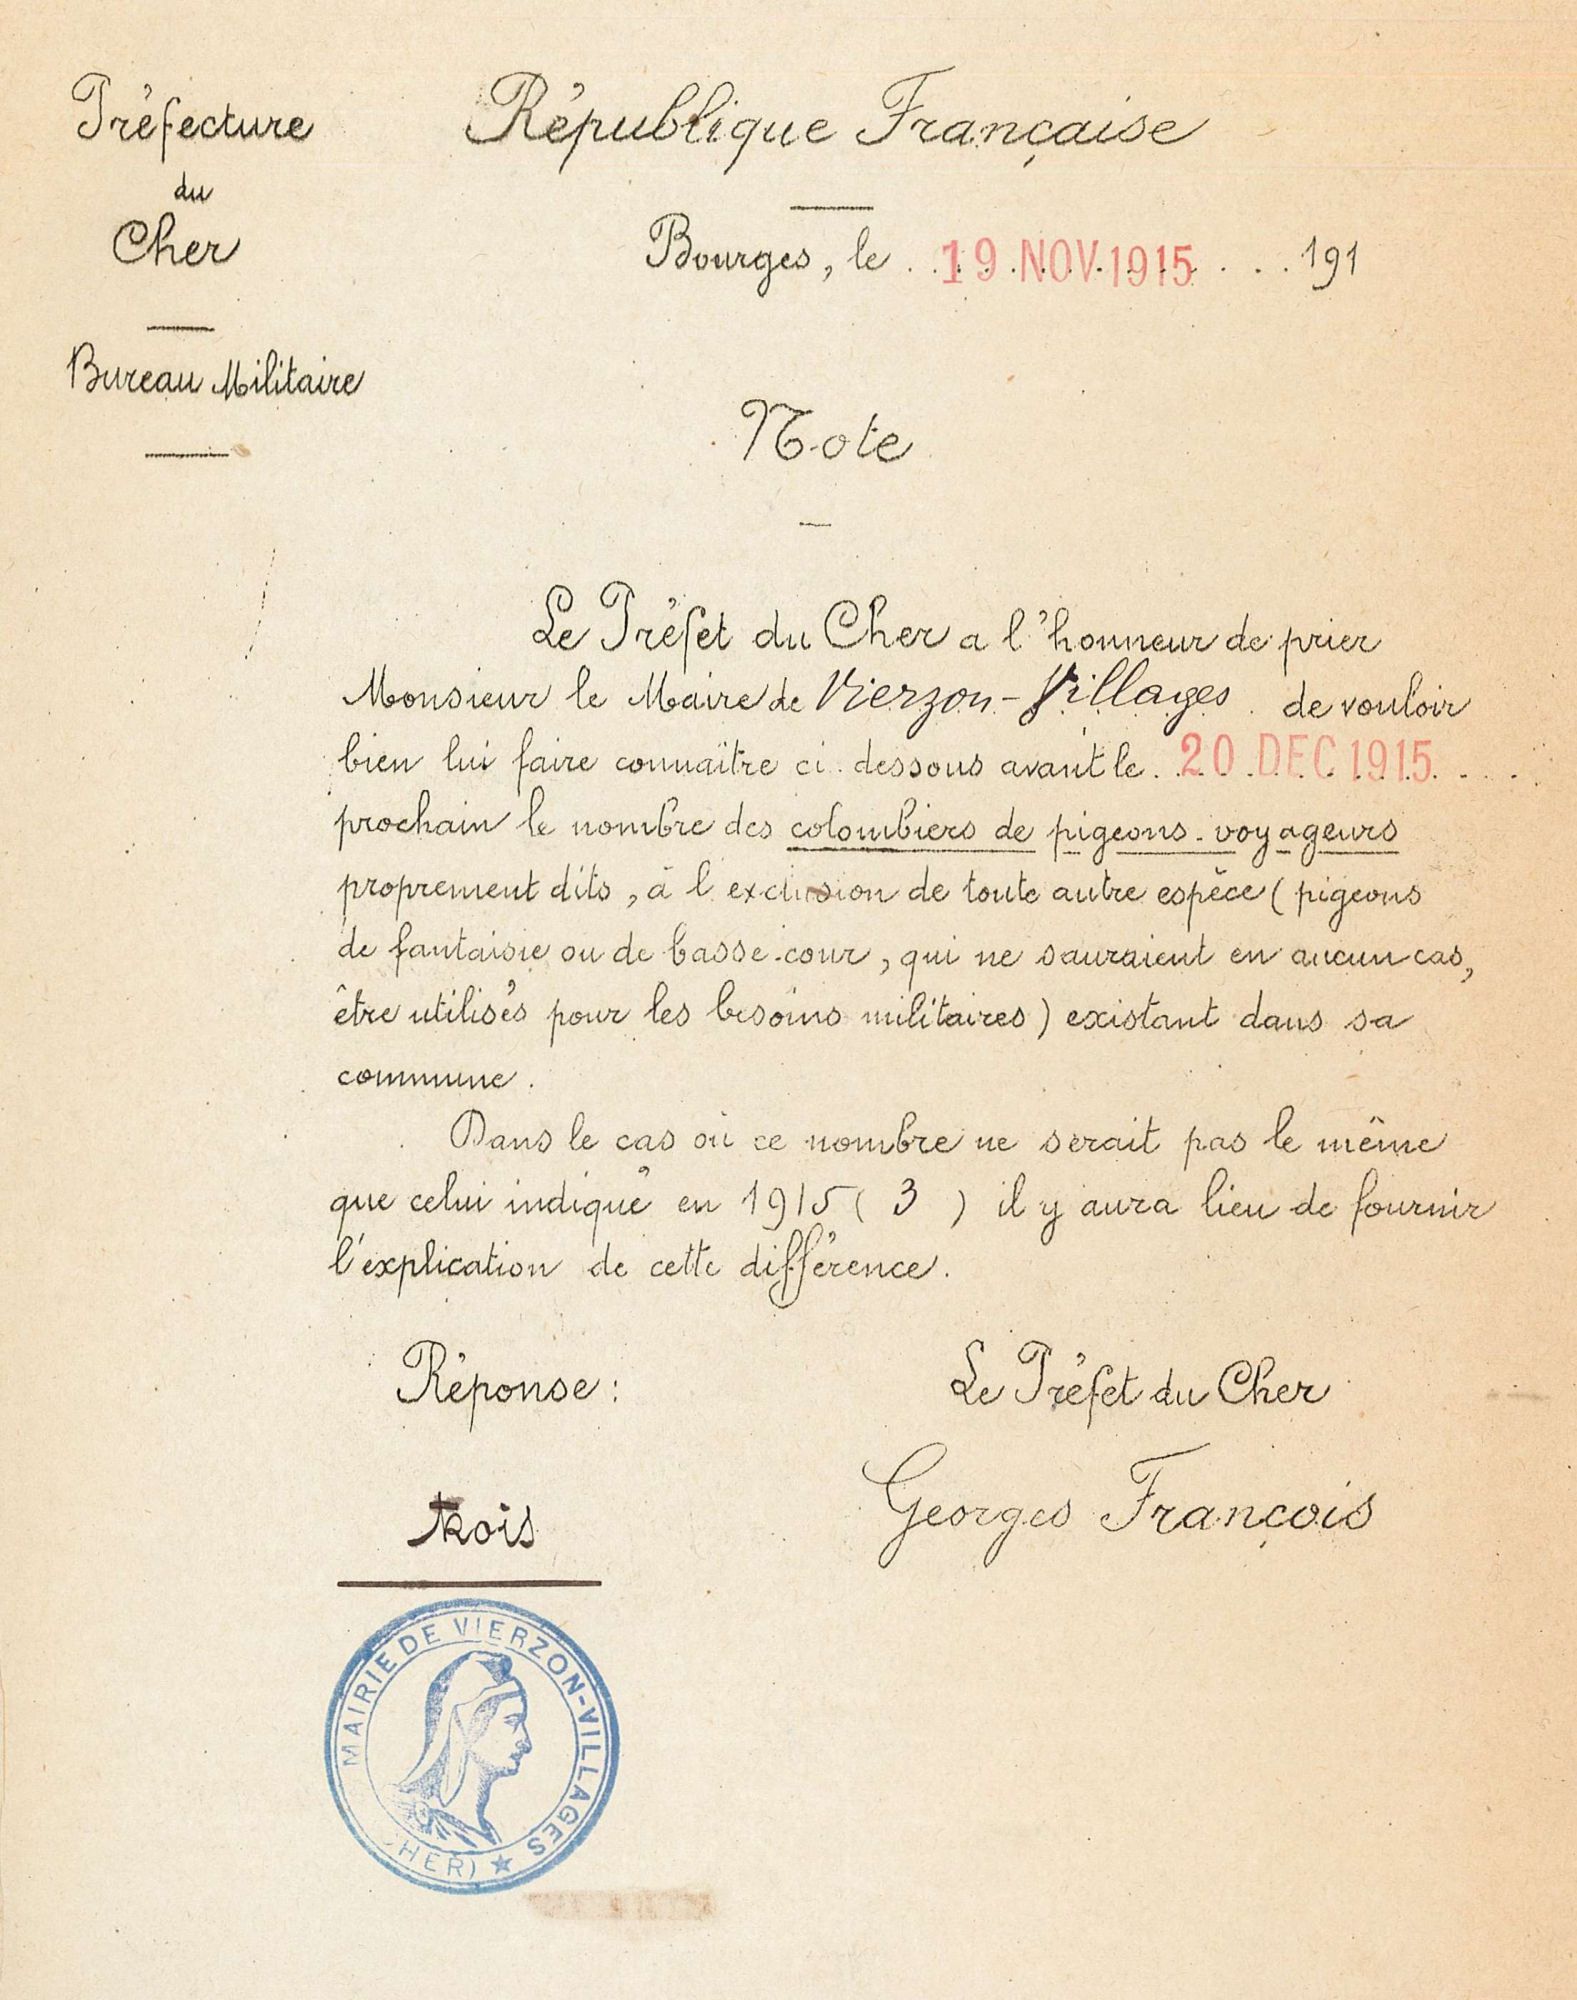 Préfecture
du
Cher
Bureau Militaire
République Française
Bourges, le 19 NOV. 1915 191
Note
Le Préfet du Cher a l'honneur de prier
Monsieur le Maire de Vierzon-Villages de vouloir
bien lui faire connaître ci-dessous avant le 20 DEC 1915
prochain le nombre des colombiers de pigeons-voyageurs
proprement dits, à l'exclusion de toute autre espèce (pigeons
de fantaisie ou de basse-cour, qui ne sauraient en aucun cas,
être utilisés pour les besoins militaires) existant dans sa
commune.
Dans le cas où ce nombre ne serait pas le même
que celui indiqué en 1915 ( 3 ) il y aura lieu de fournir
l'explication de cette différence.
Réponse :
trois
Le Préfet du Cher
Georges François
MAIRIE DE VIERZON-VILLAGES
(CHER)